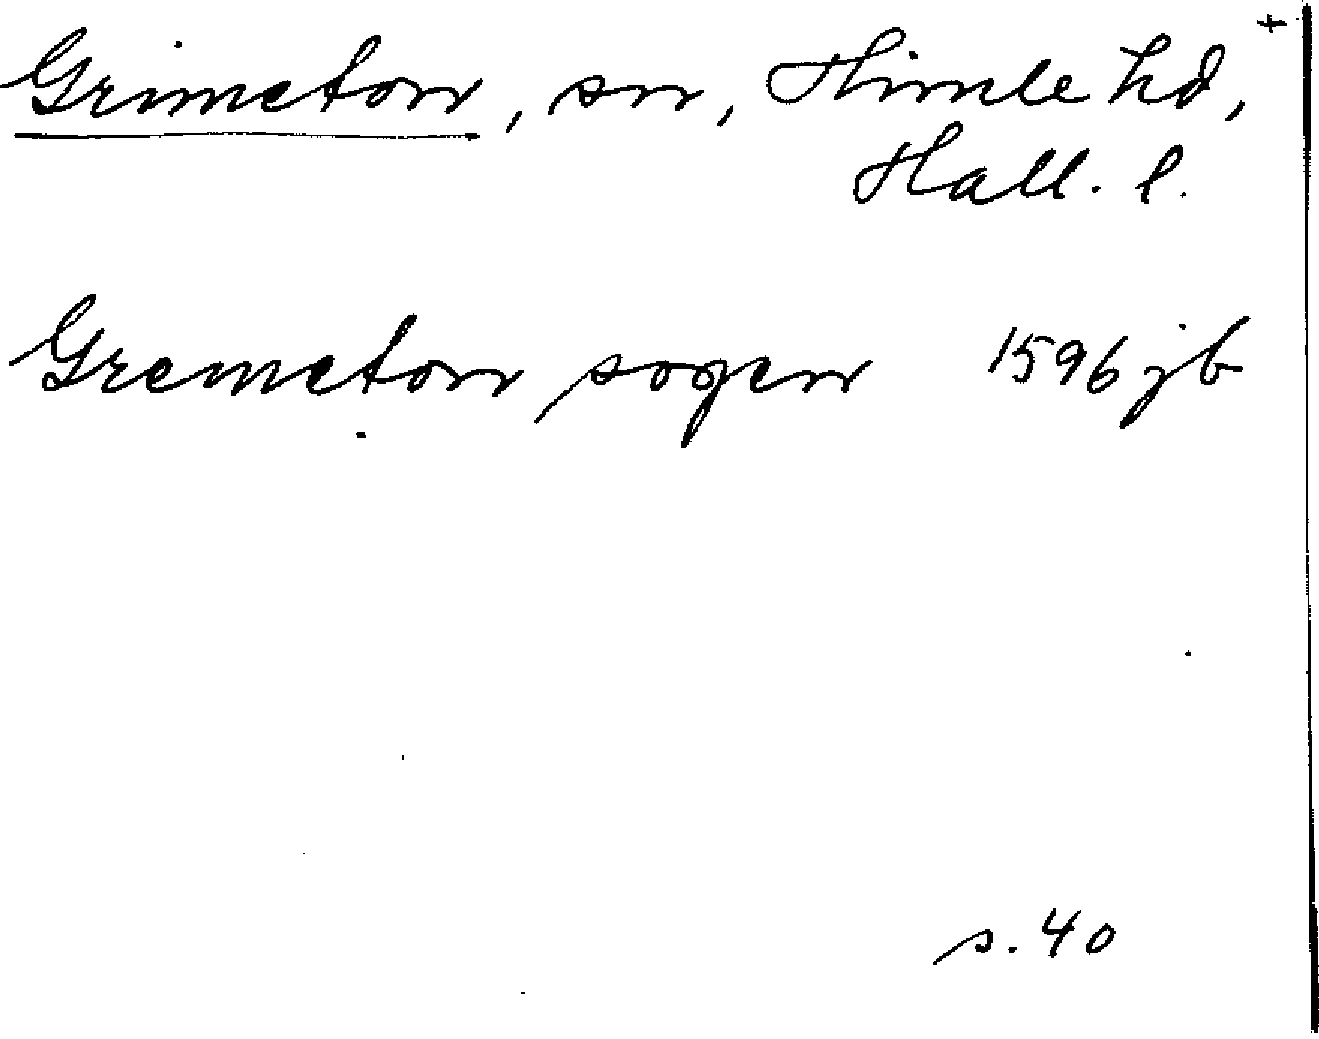 Grimeton, sn, Himle hd, +
Hall. l.
Gremeton sogen 1596 jb
s. 40